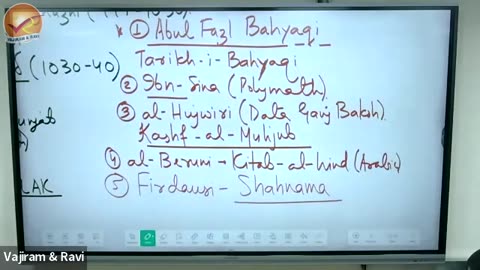 Vajiram & Ravi
(1030-40)
* ① Abul Fazl Bahyaqi
Tarikh-i-Bahyaqi
② Ibn-Sina (Polymath)
③ al-Hujwiri (Data Ganj Baksh)
Kashf-al-Muhjub
④ al-Beruni → Kitab-al-hind (Arabic)
⑤ Firdausi - Shahnama
Vajiram & Ravi